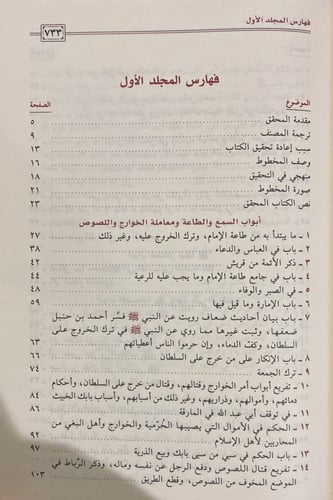 فهارس المجلد الأول
٧٣٣
فهارس المجلد الأول
الموضوع الصفحة
مقدمة المحقق ٥
ترجمة المصنف ٩
سبب إعادة تحقيق الكتاب ١٣
وصف المخطوط ١٦
منهجي في التحقيق ١٨
صورة المخطوط ٢١
نص الكتاب المحقق ٢٣
أبواب السمع والطاعة ومعاملة الخوارج واللصوص
١ - ما يبتدأ به من طاعة الإمام، وترك الخروج عليه، وغير ذلك ٢٧
٢ - باب في العباس والدعاء ٣٨
٣ - ذكر الأئمة من قريش ٤٢
٤ - باب في جامع طاعة الإمام وما يجب عليه للرعية ٤٤
٥ - في الصبر والوفاء ٤٨
٦ - باب الإمارة وما قيل فيها ٥٩
٧ - باب بيان أحاديث ضعاف رويت عن النبي ﷺ فسّر أحمد بن حنبل
ضعفها، وثبت غيرها مما روي عن النبي ﷺ في ترك الخروج على
السلطان، وكف الدماء، وإن حرموا الناس أعطياتهم ٦٣
٨ - باب الإنكار على من خرج على السلطان ٦٦
٩ - ترك الجمعة ٧٤
١٠ - تفريع أبواب أمر الخوارج وقتالهم، وقتال من خرج على السلطان، وأحكام
دمائهم، وأموالهم، وذراريهم، وغير ذلك من أسبابهم، وأسباب بابك الخبيث ٨٤
١١ - في توقف أبي عبد الله في المارقة ٨٦
١٢ - الحكم في الأموال التي يصيبها الخُرَّمية والخوارج وأهل البغي من
المحاربين لأهل الإسلام ٩٢
١٣ - باب الحكم في سبي من سبى بابك وبيع الذرية ٩٧
١٤ - تفريع قتال اللصوص ودفع الرجل عن نفسه وماله، وذكر الرِّباط في
الموضع المخوف من اللصوص، وقطع الطريق ١٠٣